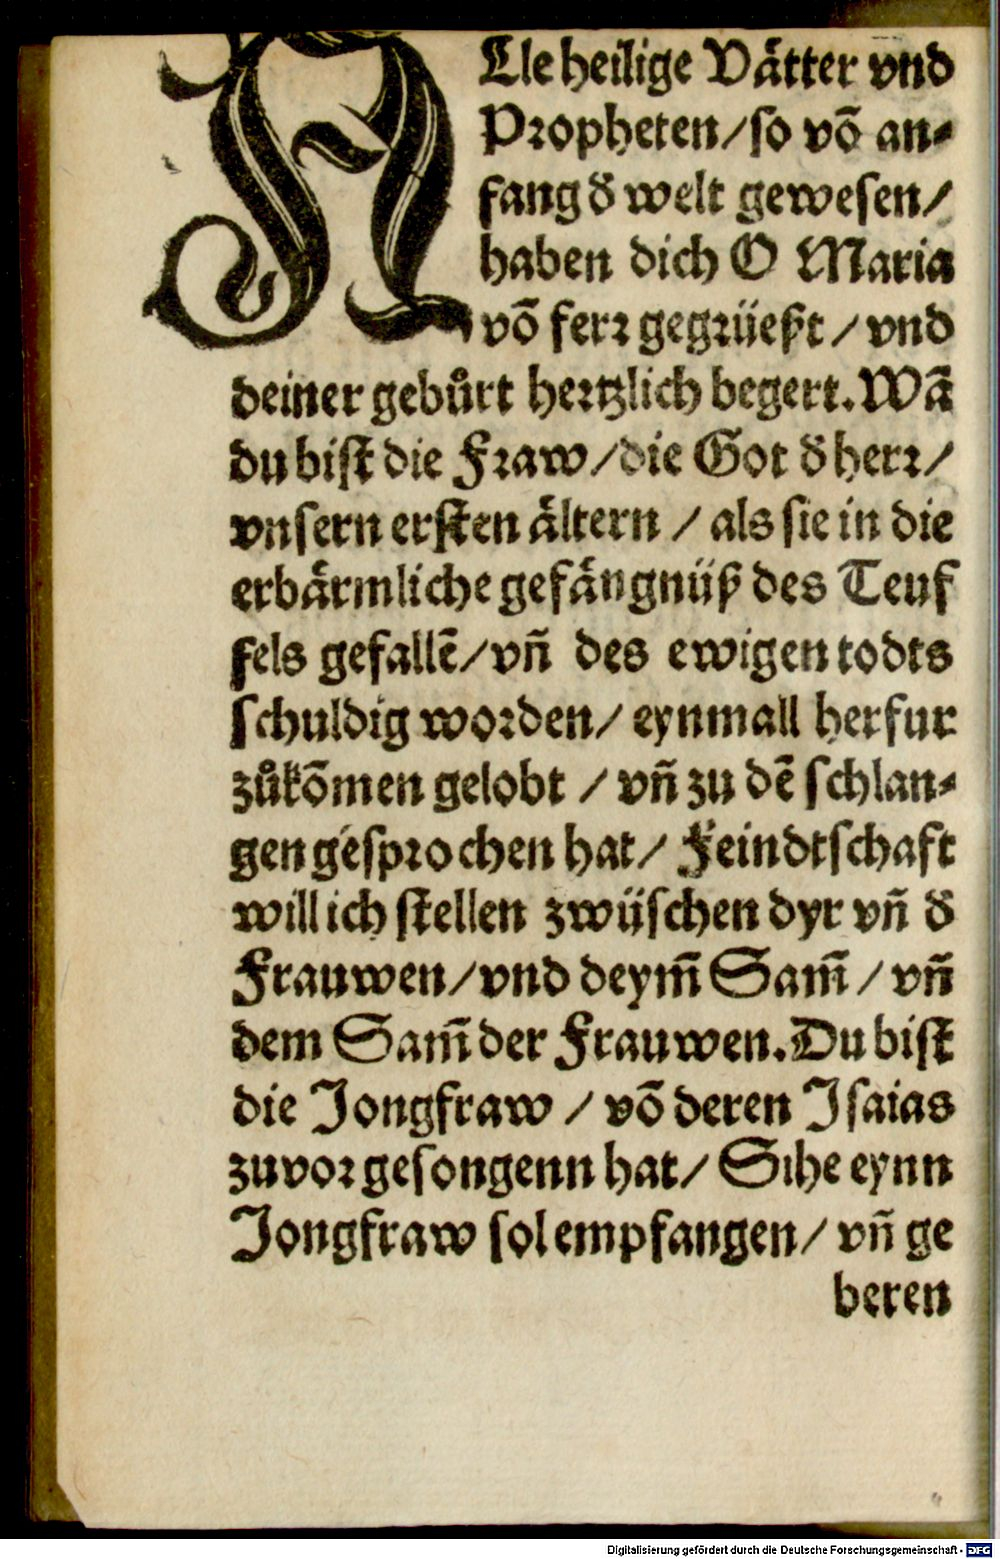 ALle heilige Vätter vnd
Propheten/so võ an-
fang d̕ welt gewesen/
haben dich O Maria
võ ferr gegrüeßt/vnd
deiner gebůrt hertzlich begert. Wã
du bist die Fraw/die Got d̕ herr/
vnsern ersten ältern/als sie in die
erbärmliche gefängnüß des Teuf
fels gefallẽ/vñ des ewigen todts
schuldig worden/eynmall herfur
zůkõmen gelobt/vñ zu dẽ schlan-
gen gesprochen hat/Feindtschaft
will ich stellen zwüschen dyr vñ d̕
Frauwen/vnd deym̃ Sam̃/vñ
dem Sam̃ der Frauwen. Du bist
die Jongfraw/võ deren Isaias
zuvor gesongenn hat/Sihe eynn
Jongfraw sol empfangen/vñ ge
beren
Digitalisierung gefördert durch die Deutsche Forschungsgemeinschaft - DFG